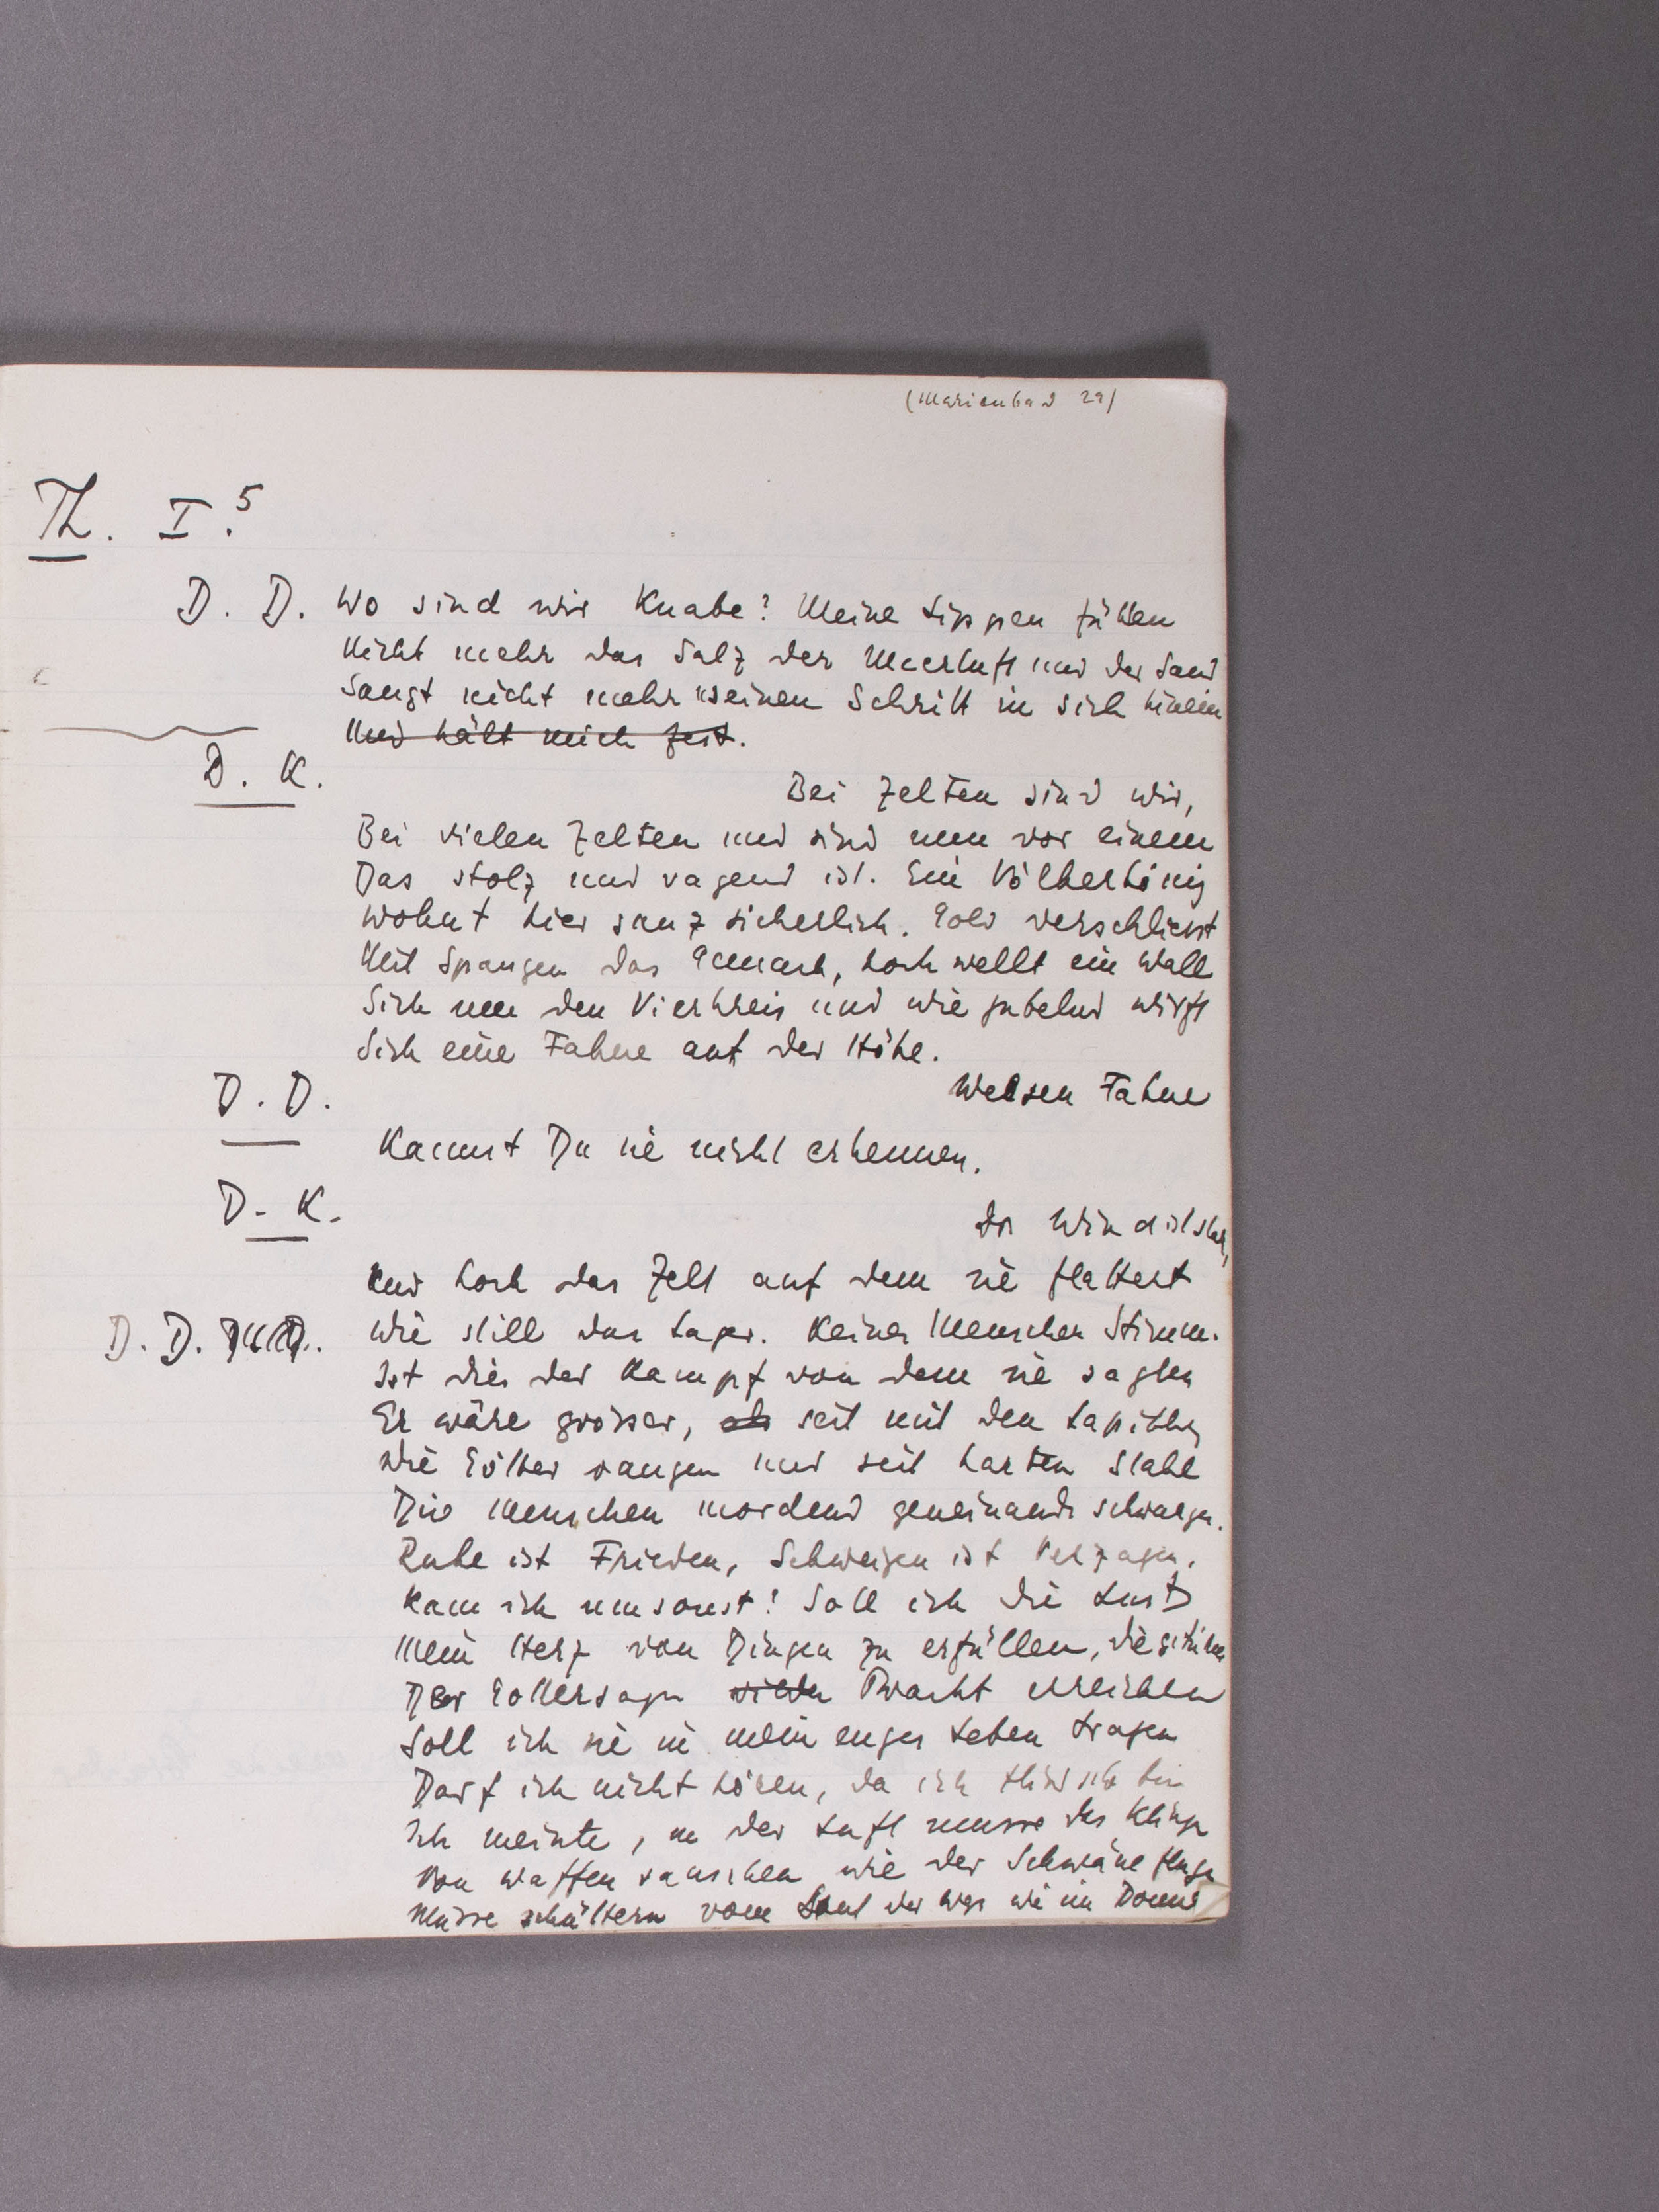 (Marienbad 29)
Th. I.5
D. D. Wo sind wir Knabe? Meine Lippen fühlen
Nicht mehr das Salz der Meerluft und der Sand
Saugt nicht mehr meinen Schritt in sich hinein
Und hält mich fest.
D. K.
Bei Zelten sind wir,
Bei vielen Zelten und sind nun vor einem
Das stolz und ragend ist. Ein Völkerkönig
Wohnt hier ganz sicherlich. Gold verschliesst
Mit Spangen das Gemach, hoch wellt ein Wall
Sich um den Vierkreis und wie jubelnd wirft
Sich eine Fahne auf der Höhe.
D. D.
Wessen Fahne
Kannst Du sie nicht erkennen.
D. K.
Der Wind ist stark,
Und hoch das Zelt auf dem sie flattert
D. D. Wie still das Lager. Keines Menschen Stimm.
Ist dies der Kampf von dem sie sagten
Er wäre grösser, als seit mit den Lapithen
Die Götter rangen und seit harten Stahl
Die Menschen mordend geneinander schwangen.
Ruhe ist Frieden, Schweigen ist Verzagen.
Kam ich umsonst! Soll ich die Lust
Mein Herz von Dingen zu erfüllen, die
Der Göttersagen wilde Pracht erreichen
Soll ich sie in mein enges Leben tragen
Darf ich nicht hören, da ich bin
Ich meinte, in der Luft müsse das Klingen
Von Waffen rauschen wie der Schwäne Fluge
Müsse schüttern vom der Wagen wie im Donner